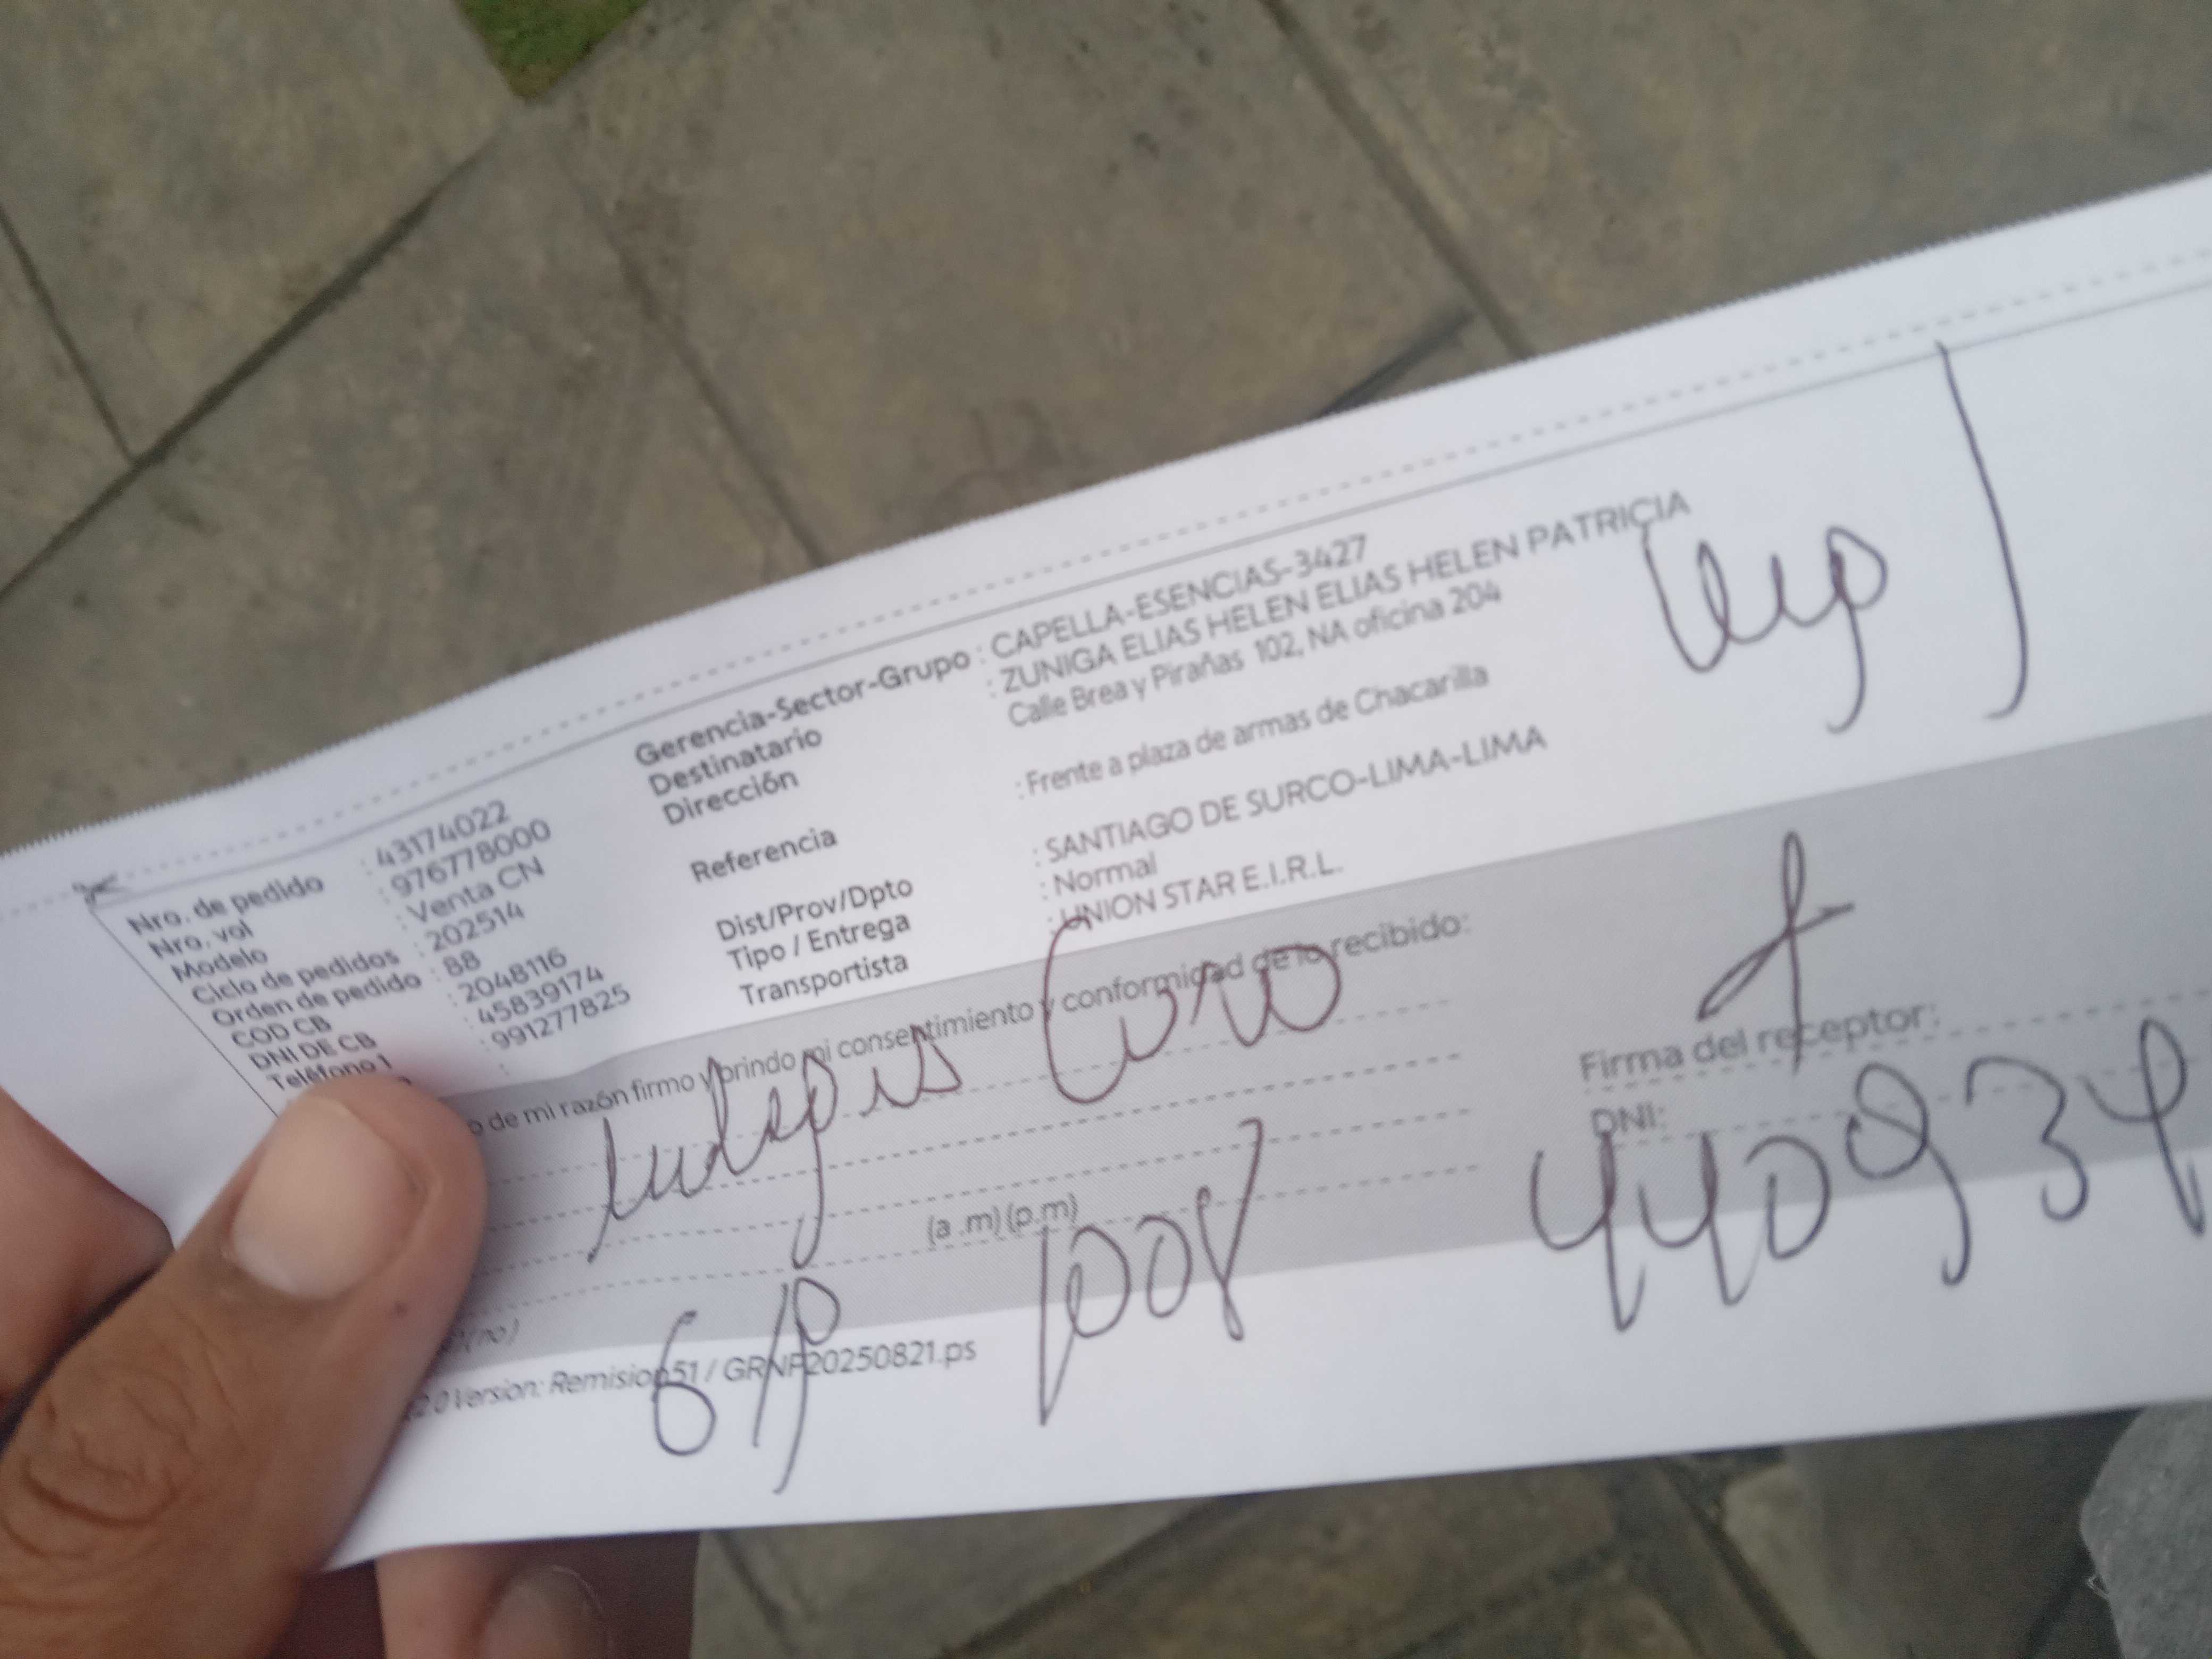 Nro. de pedido : 43174022
Nro. vol : 976778000
Modelo : Venta CN
Ciclo de pedidos : 202514
Orden de pedido : 88
COD CB : 2048116
DNI DE CB : 45839174
Teléfono 1 : 991277825
Gerencia-Sector-Grupo : CAPELLA-ESENCIAS-3427
Destinatario : ZUNIGA ELIAS HELEN ELIAS HELEN PATRICIA
Dirección Calle Brea y Pirañas 102, NA oficina 204
Referencia : Frente a plaza de armas de Chacarilla
Dist/Prov/Dpto : SANTIAGO DE SURCO-LIMA-LIMA
Tipo / Entrega : Normal
Transportista : UNION STAR E.I.R.L.
o de mi razón firmo y brindo mi consentimiento y conformidad de lo recibido:
Firma del receptor:
DNI:
440934
(a .m) (p.m)
(no)
2.0 Version: Remision51 / GRNF20250821.ps